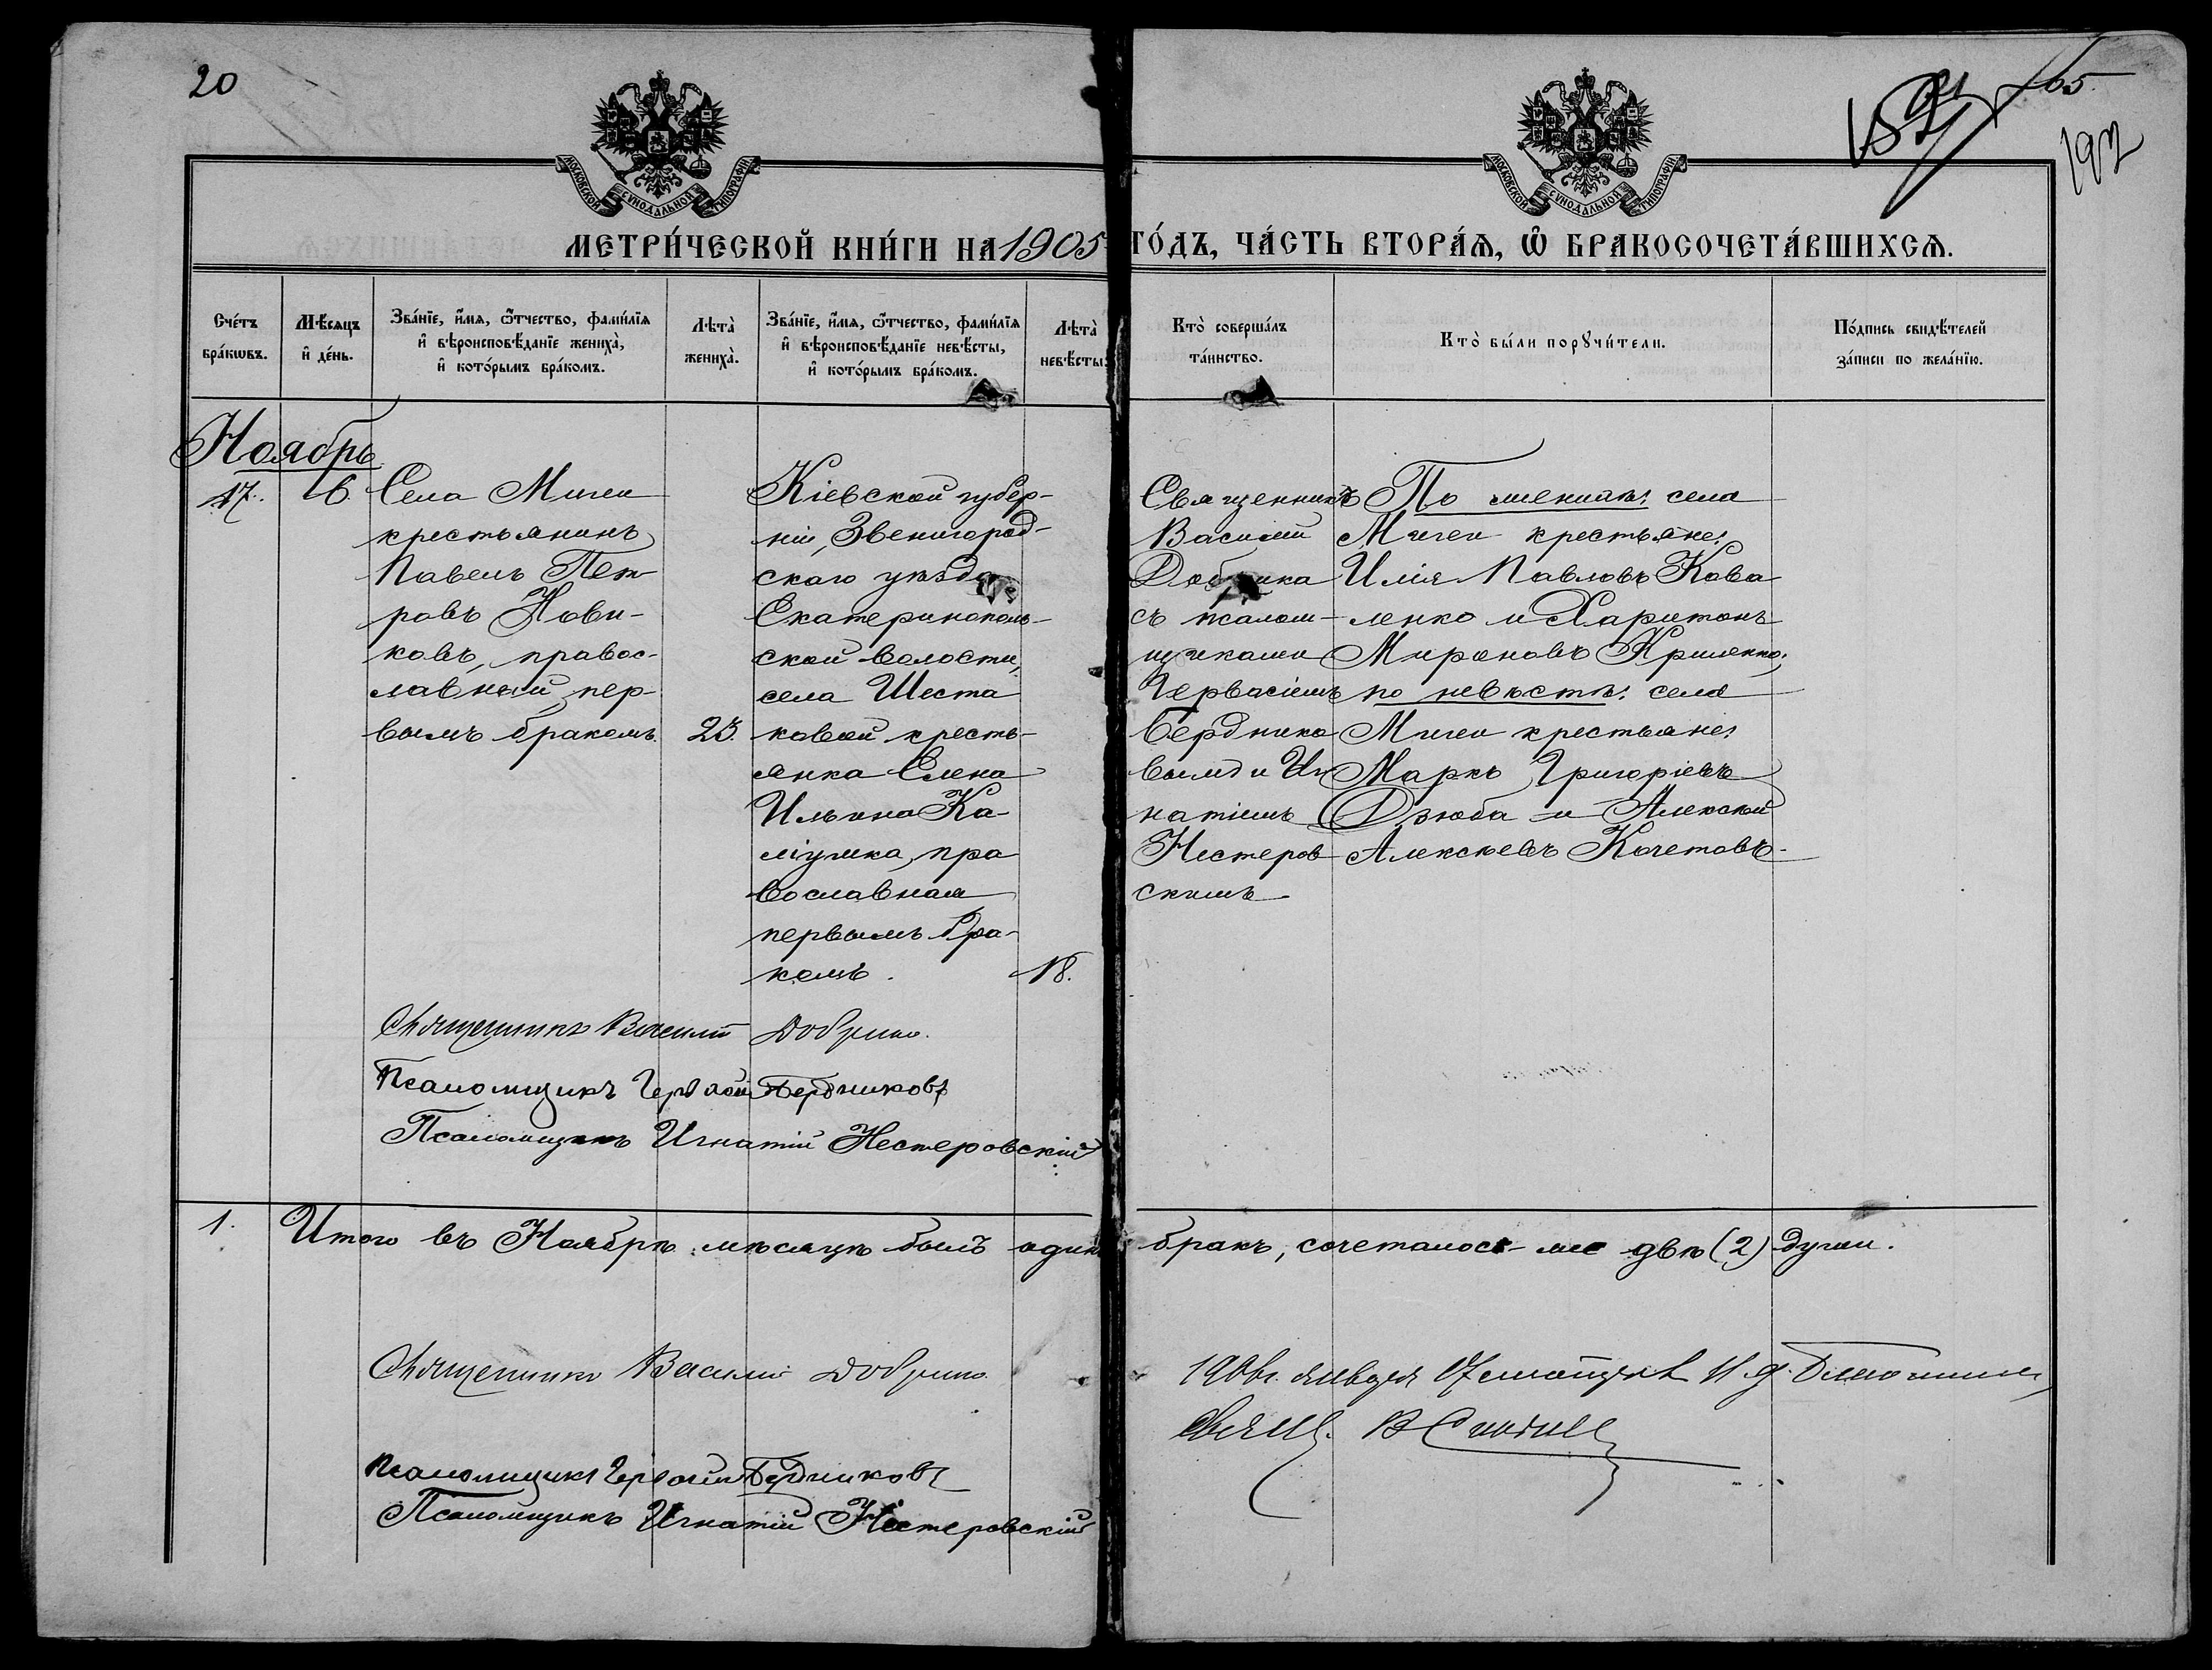 20
65.
192
МОСКОВСКОЙ СѴНОДАЛЬНОЙ ТИПОГРАФІИ
МОСКОВСКОЙ СѴНОДАЛЬНОЙ ТИПОГРАФІИ
МЕТРИ́ЧЕСКОЙ КНИ́ГИ НА 1905 ГО́ДЪ, ЧА́СТЬ ВТОРА́Ѧ, Ѽ БРАКОСОЧЕТА́ВШИХСѦ.
Сче́тъ бра́кѡвъ.
Мѣ́сѧцъ и҆ де́нь.
Зва́нїе, и҆́мѧ, ѻ҆́тчество, фами́лїѧ и҆ вѣроисповѣ́данїе жениха̀, и҆ кото́рымъ бра́комъ.
Лѣта̀ жениха̀.
Зва́нїе, и҆́мѧ, ѻ҆́тчество, фами́лїѧ и҆ вѣроисповѣ́данїе невѣ́сты, и҆ кото́рымъ бра́комъ.
Лѣта̀ невѣ́сты.
Кто̀ соверша́лъ та́инство.
Кто̀ бы́ли порꙋчи́тели.
По́дпись свидѣ́телей за́писи по жела́нїю.
Ноябрь
17.
6.
Села Мигеи
крестьянинъ
Павелъ Пет-
ровъ Нови-
ковъ, правос-
лавный, пер-
вымъ бракомъ.
23.
Кіевской губер-
ніи, Звенигород-
скаго уѣзда
Екатеринополь-
ской волости,
села Шеста
ковой кресть-
янка Елена
Ильина Ка-
, пра
вославная
первымъ бра-
комъ.
18.
Священникъ
Василій
Добрика
съ псалом-
щиками
Гервасіемъ
Берднико
вымъ и Иг
натіемъ
Нестеров
скимъ
По женихѣ: села
Мигеи крестьяне:
Илія Павловъ Кова
ленко и Харитонъ
Мироновъ
по невѣстѣ: села
Мигеи крестьяне:
Маркъ Григоріевъ
Дзюба и Алексѣй
Алексѣевъ Кочетовъ
Священникъ Василій
Псаломщикъ Гервасій Бердниковъ
Псаломщикъ Игнатій Нестеровскій
1.
Итого въ Ноябрѣ мѣсяцѣ былъ одинъ бракъ, сочеталось две (2) души.
Священникъ Василій
Псаломщикъ Гервасій Бердниковъ
Псаломщикъ Игнатій Нестеровскій
1906 г. января
Свящ. В